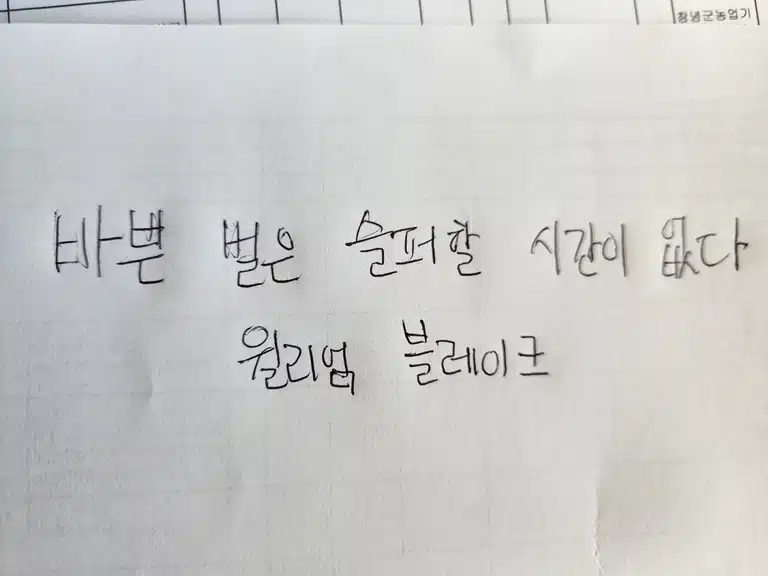 창녕군농업기
바쁜 벌은 슬퍼할 시간이 없다
윌리엄 블레이크